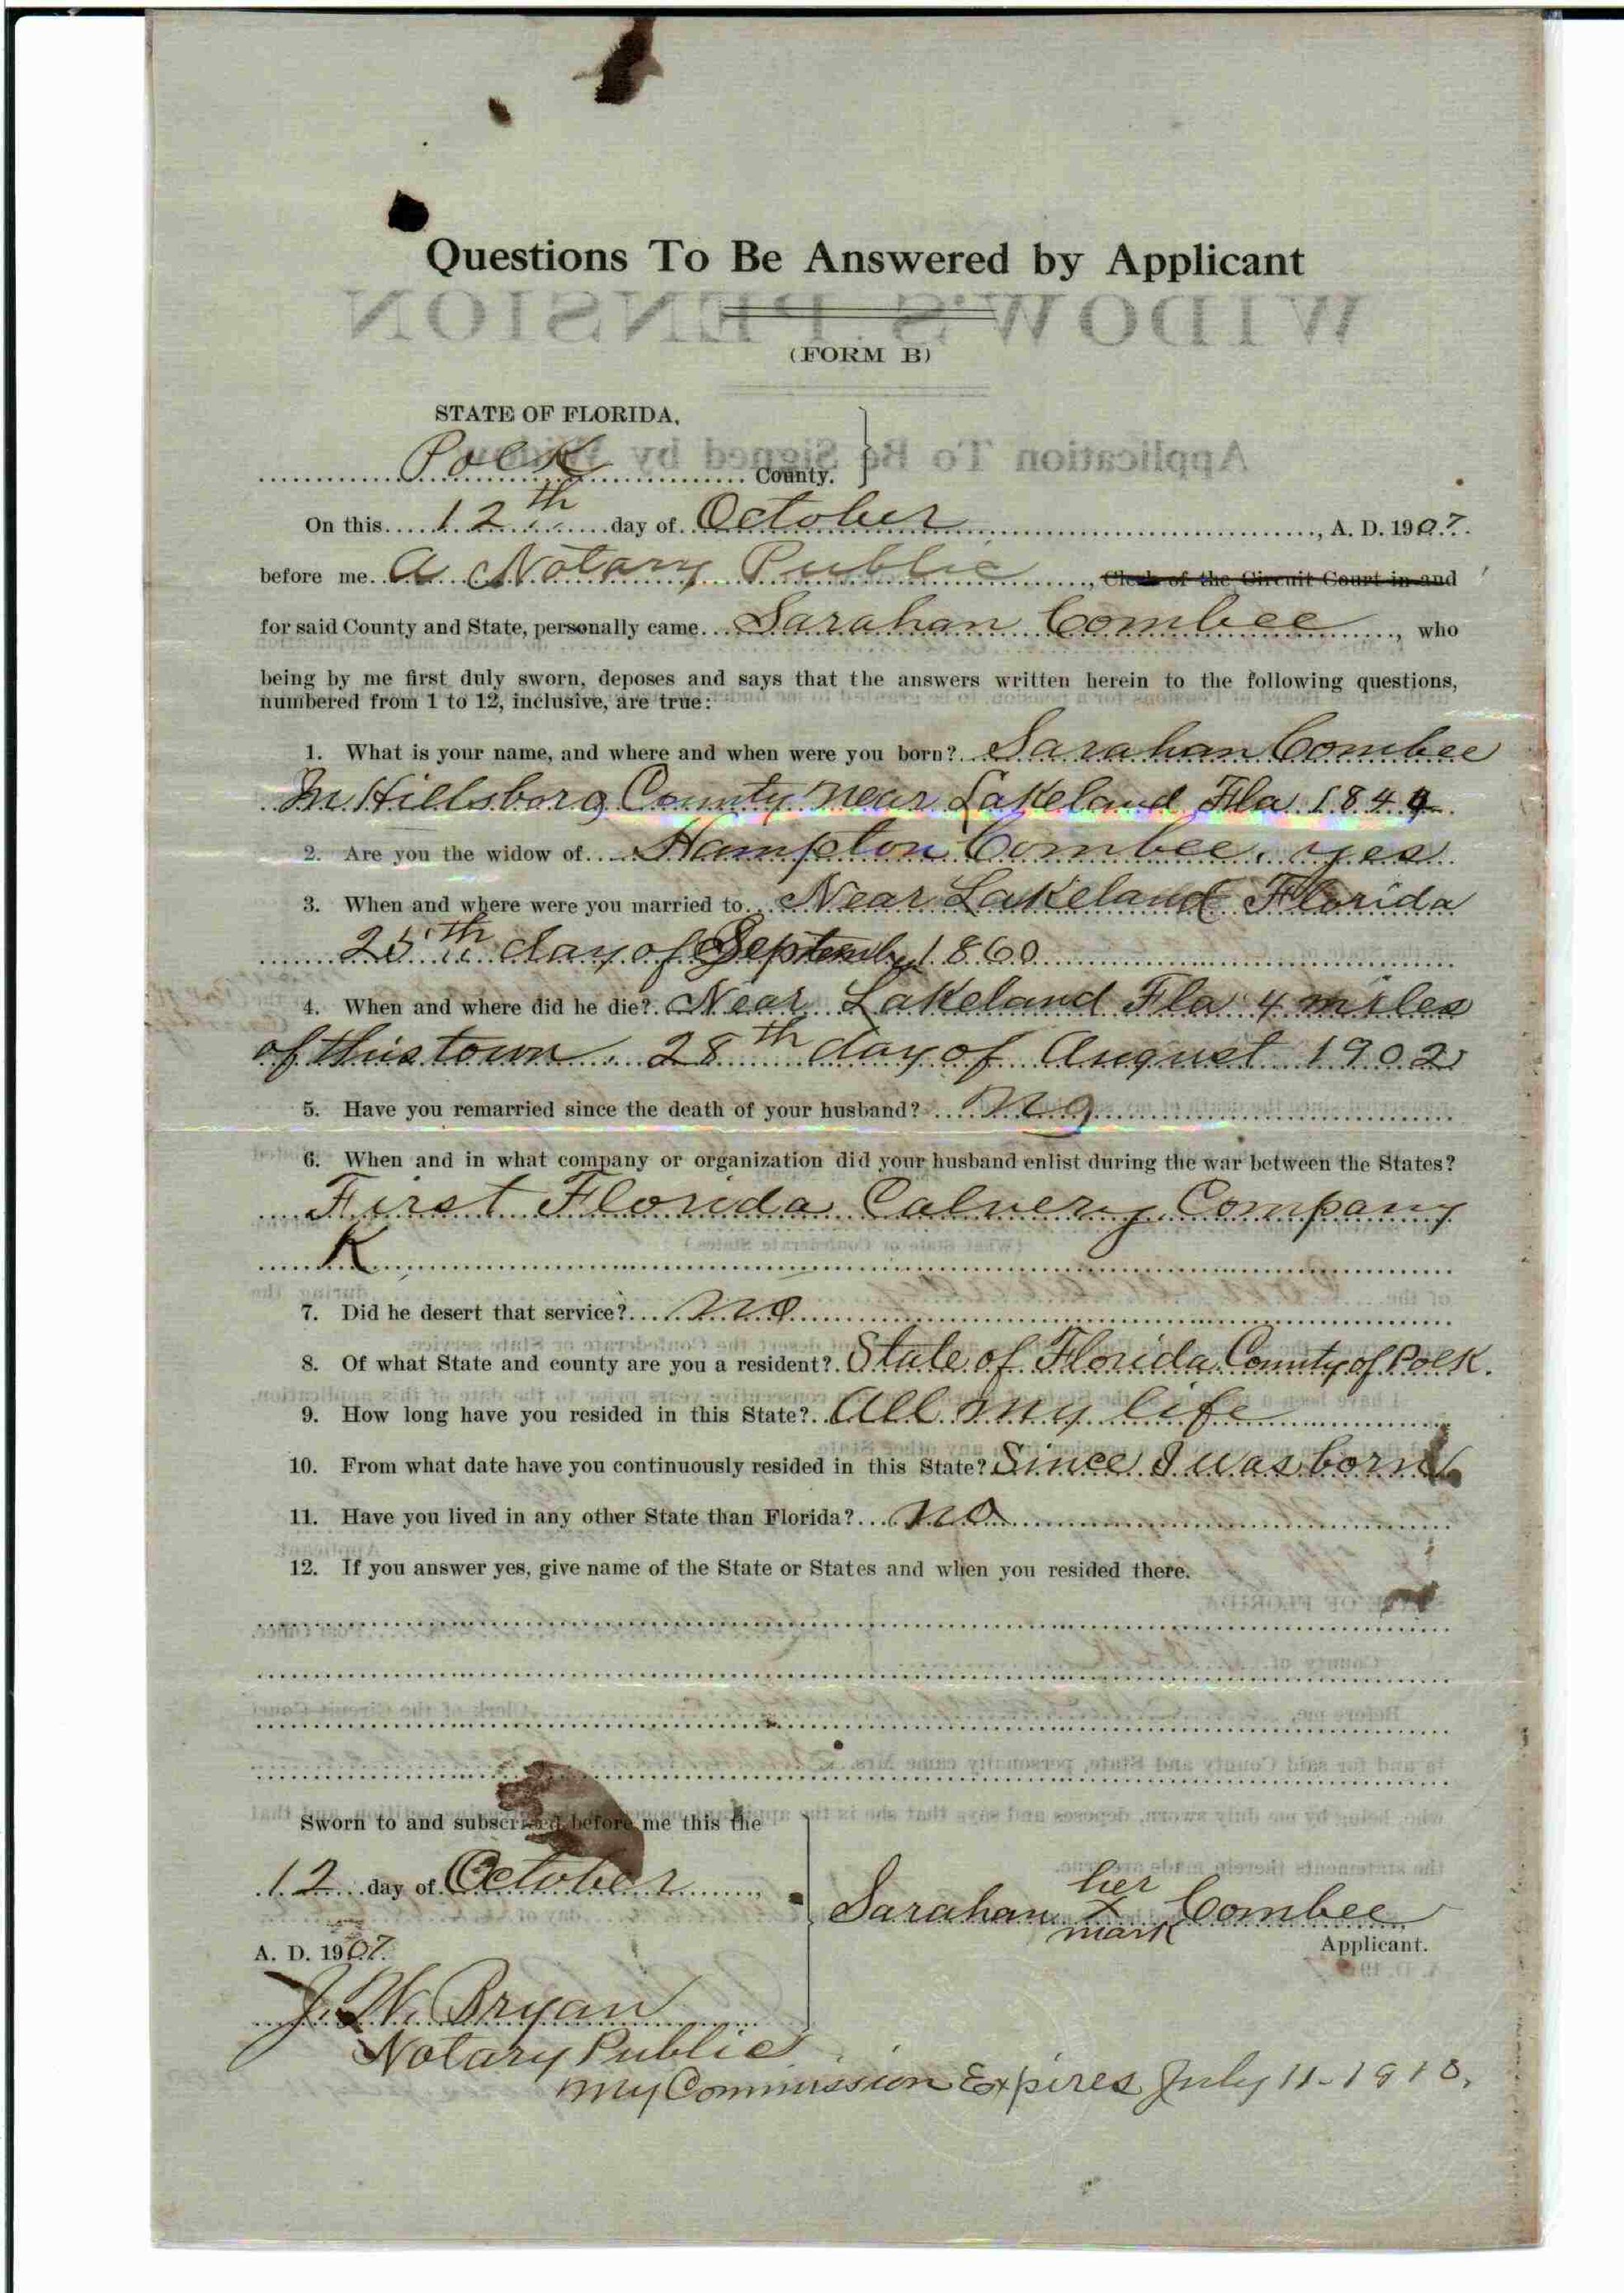 Questions To Be Answered by Applicant
WIDOW'S PENSION
(FORM B)
STATE OF FLORIDA,
Application To Be Signed by Widow
Polk County.
On this 12th day of October, A. D. 1907.
before me A Notary Public, Clerk of the Circuit Court in and
for said County and State, personally came Sarahan Combee, who
being by me first duly sworn, deposes and says that the answers written herein to the following questions,
numbered from 1 to 12, inclusive, are true:
1. What is your name, and where and when were you born? Sarahan Combee
In Hillsboro County near Lakeland Fla 1844.
2. Are you the widow of Hampton Combee. yes
3. When and where were you married to Near Lakeland Florida
25th day of September 1860
4. When and where did he die? Near Lakeland Fla 4 miles
of this town. 28th day of August 1902
5. Have you remarried since the death of your husband? No
6. When and in what company or organization did your husband enlist during the war between the States?
First Florida Calvery Company
K
7. Did he desert that service? no
8. Of what State and county are you a resident? State of Florida County of Polk.
9. How long have you resided in this State? All my life
10. From what date have you continuously resided in this State? Since I was born
11. Have you lived in any other State than Florida? no
12. If you answer yes, give name of the State or States and when you resided there.
Sworn to and subscribed before me this the
12 day of October,
A. D. 1907.
her
Sarahan X Combee
mark
Applicant.
J. W. Bryan
Notary Public
My Commission Expires July 11-1910.